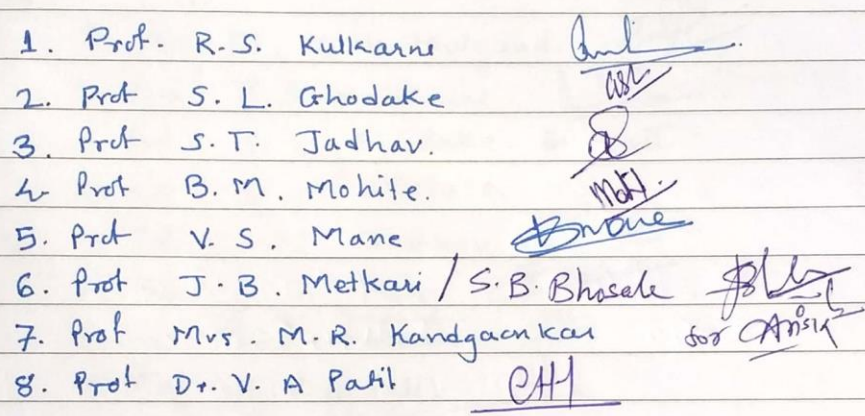 1. Prof. R. S. Kulkarni
2. Prof S. L. Ghodake
3. Prof S. T. Jadhav.
4. Prof B. M. Mohite.
5. Prof V. S. Mane
6. Prof J. B. Metkari / S. B. Bhosale
7. Prof Mrs M. R. Kandgaonkar for
8. Prof Dr. V. A Patil